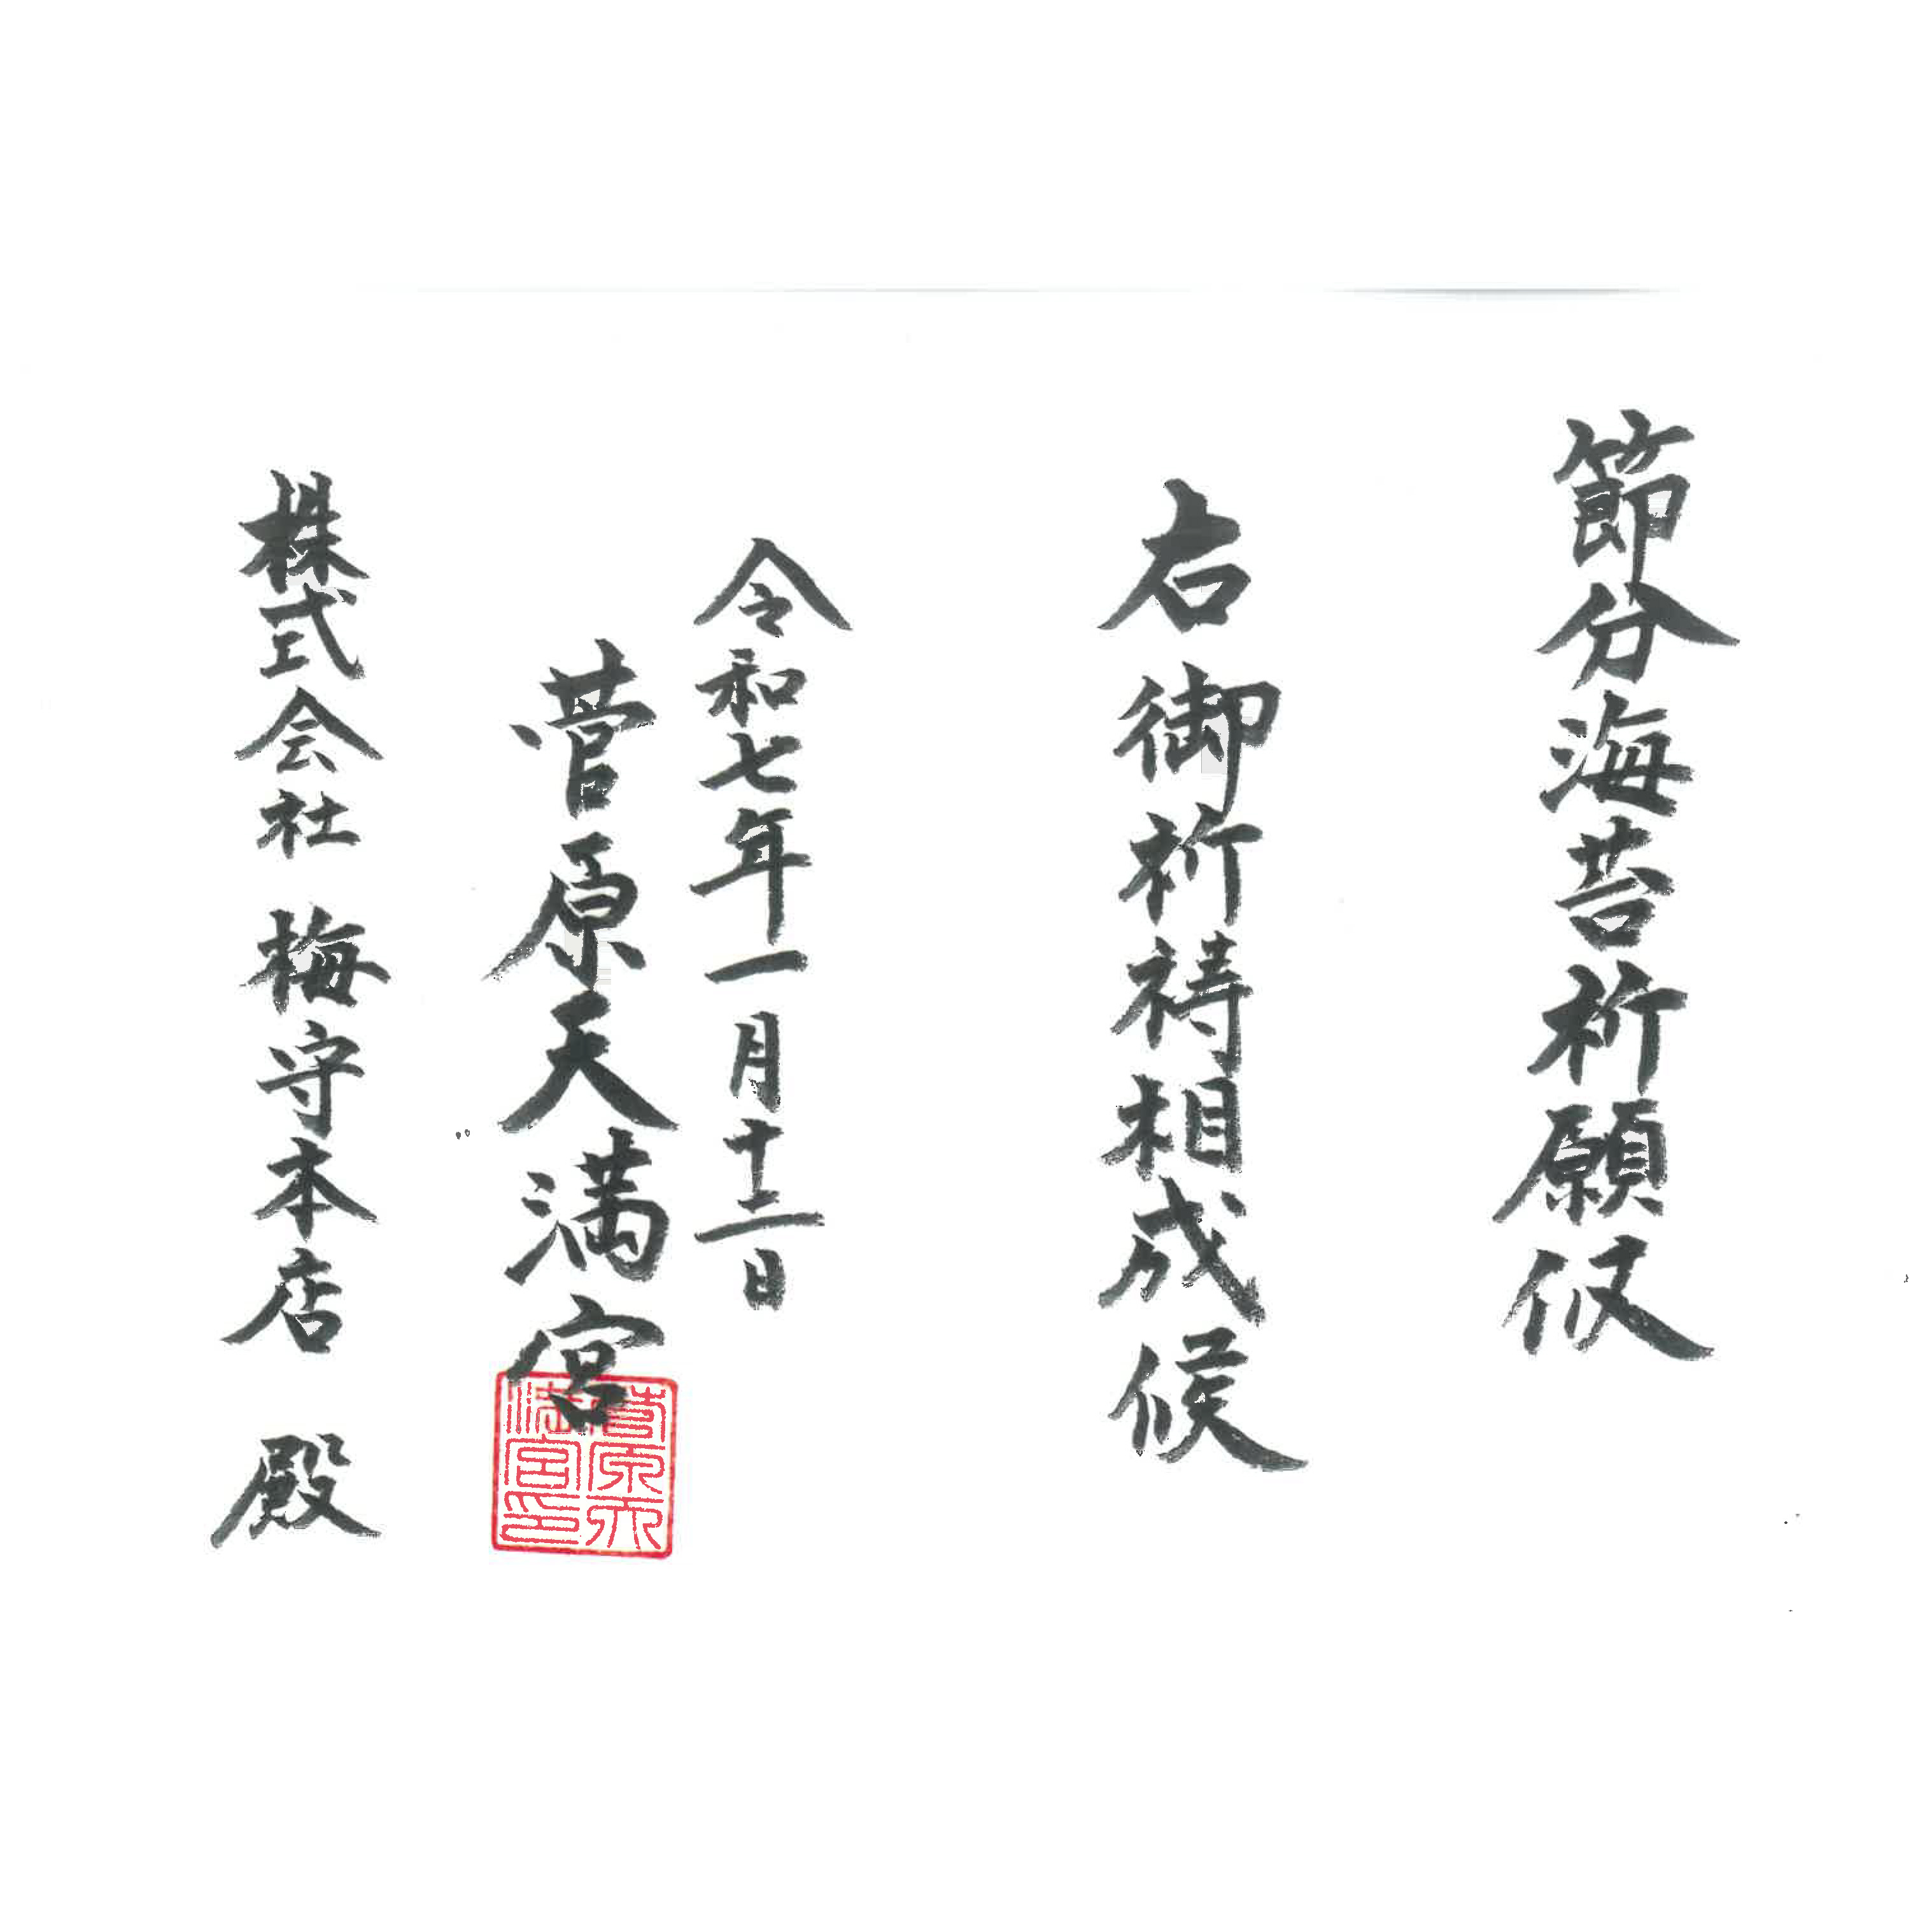 節分海苔祈願攸
右御祈祷相成候
令和七年一月十二日
菅原天満宮
菅原天
満宮印
株式会社 梅守本店 殿